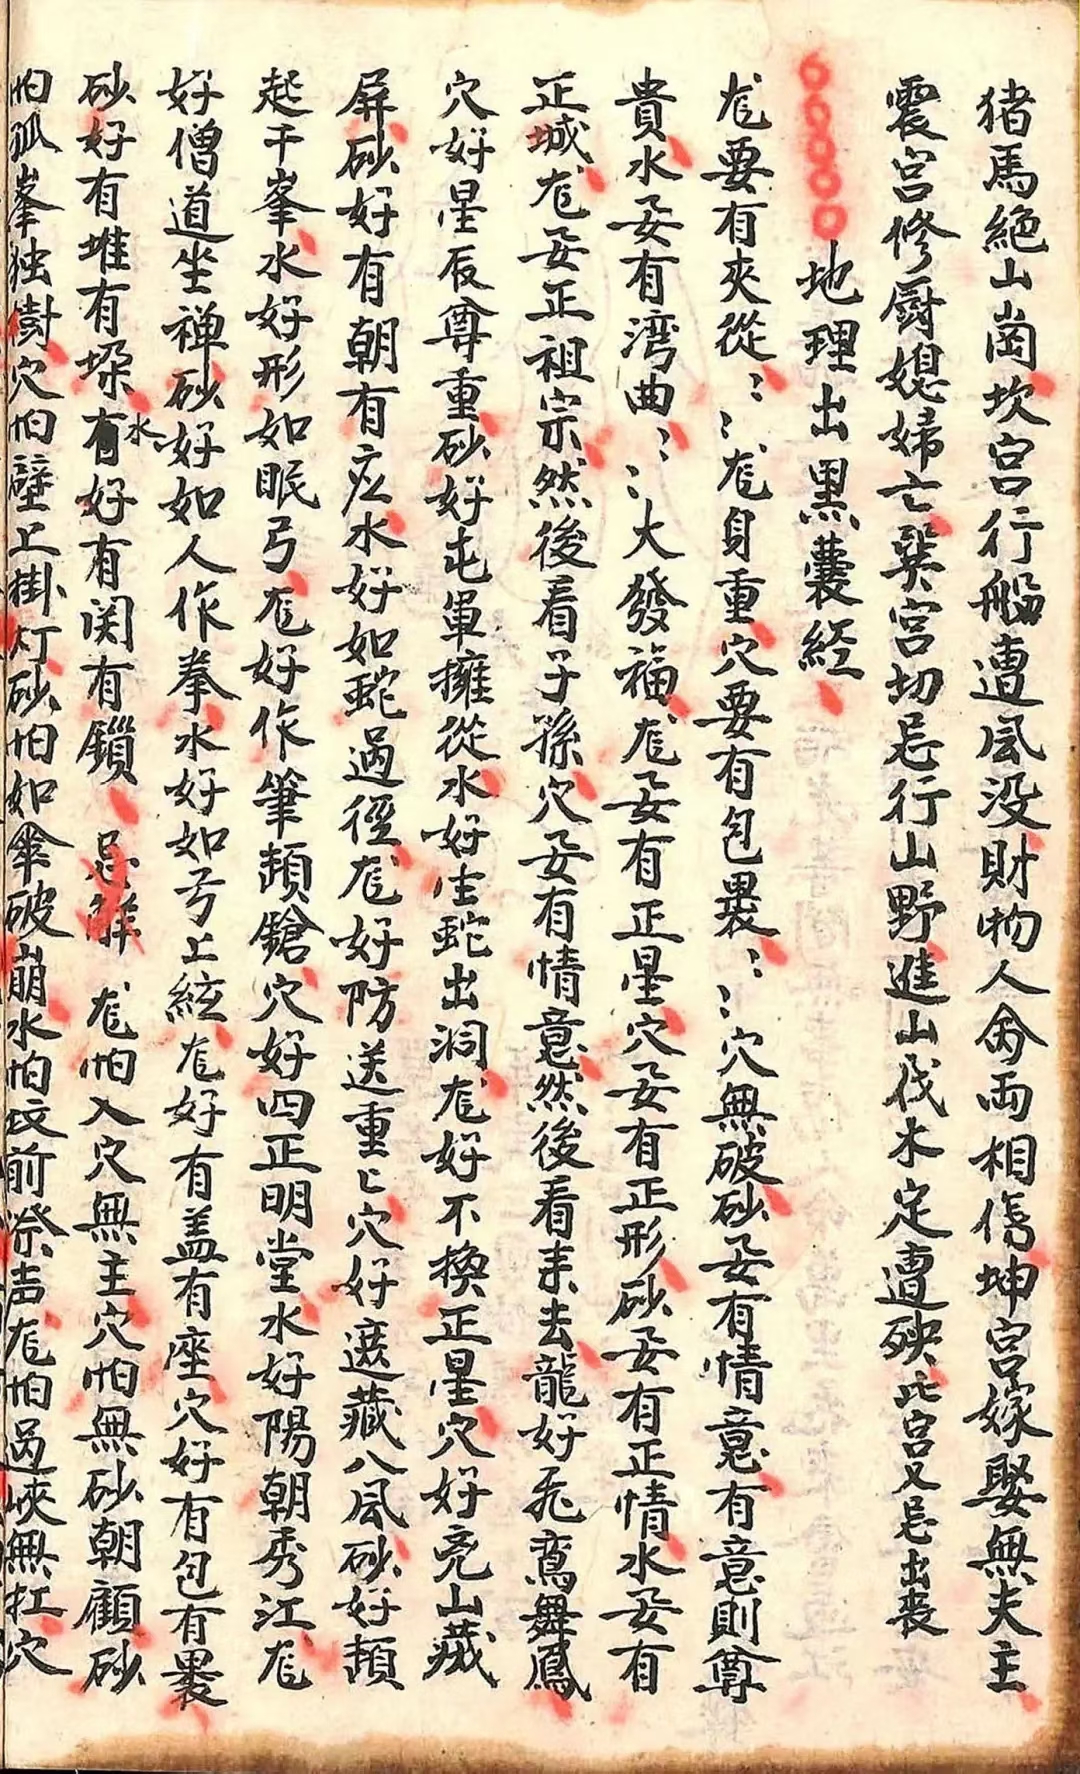 猪馬絕山崗坎宮行船遭風没財物人命両相傷坤宮嫁娶無夫主
震宮修厨媳婦亡巽宮切忌行山野進山伐木定遭殃此宮又忌出喪
地理出黒囊經
尨要有夾從〻〻尨身重穴要有包裹〻〻穴無破砂妟有情意有意則尊
貴水妟有湾曲〻〻大發福尨妟有正星穴妟有正形砂妟有正情水妟有
正城尨妟正祖宗然後看子孫穴妟有情意然後看来去龍好飛鸞舞鳳
穴好星辰尊重砂好屯軍擁從水好生蛇出洞尨好不換正星穴好兜山藏
屏砂好有朝有応水好如蛇過徑尨好防送重〻穴好遮藏八風砂好頓
起千峯水好形如眠弓尨好作筆頓鎗穴好四正明堂水好陽朝秀江尨
好僧道坐禅砂好如人作拳水好如弓上絃尨好有盖有座穴好有包有裹
砂好有堆有垛水好有関有鎖尨怕入穴無主穴怕無砂朝顧砂
怕孤峯独樹穴怕壁上掛灯砂怕如傘破崩水怕坟前滐声尨怕過峡無扛穴